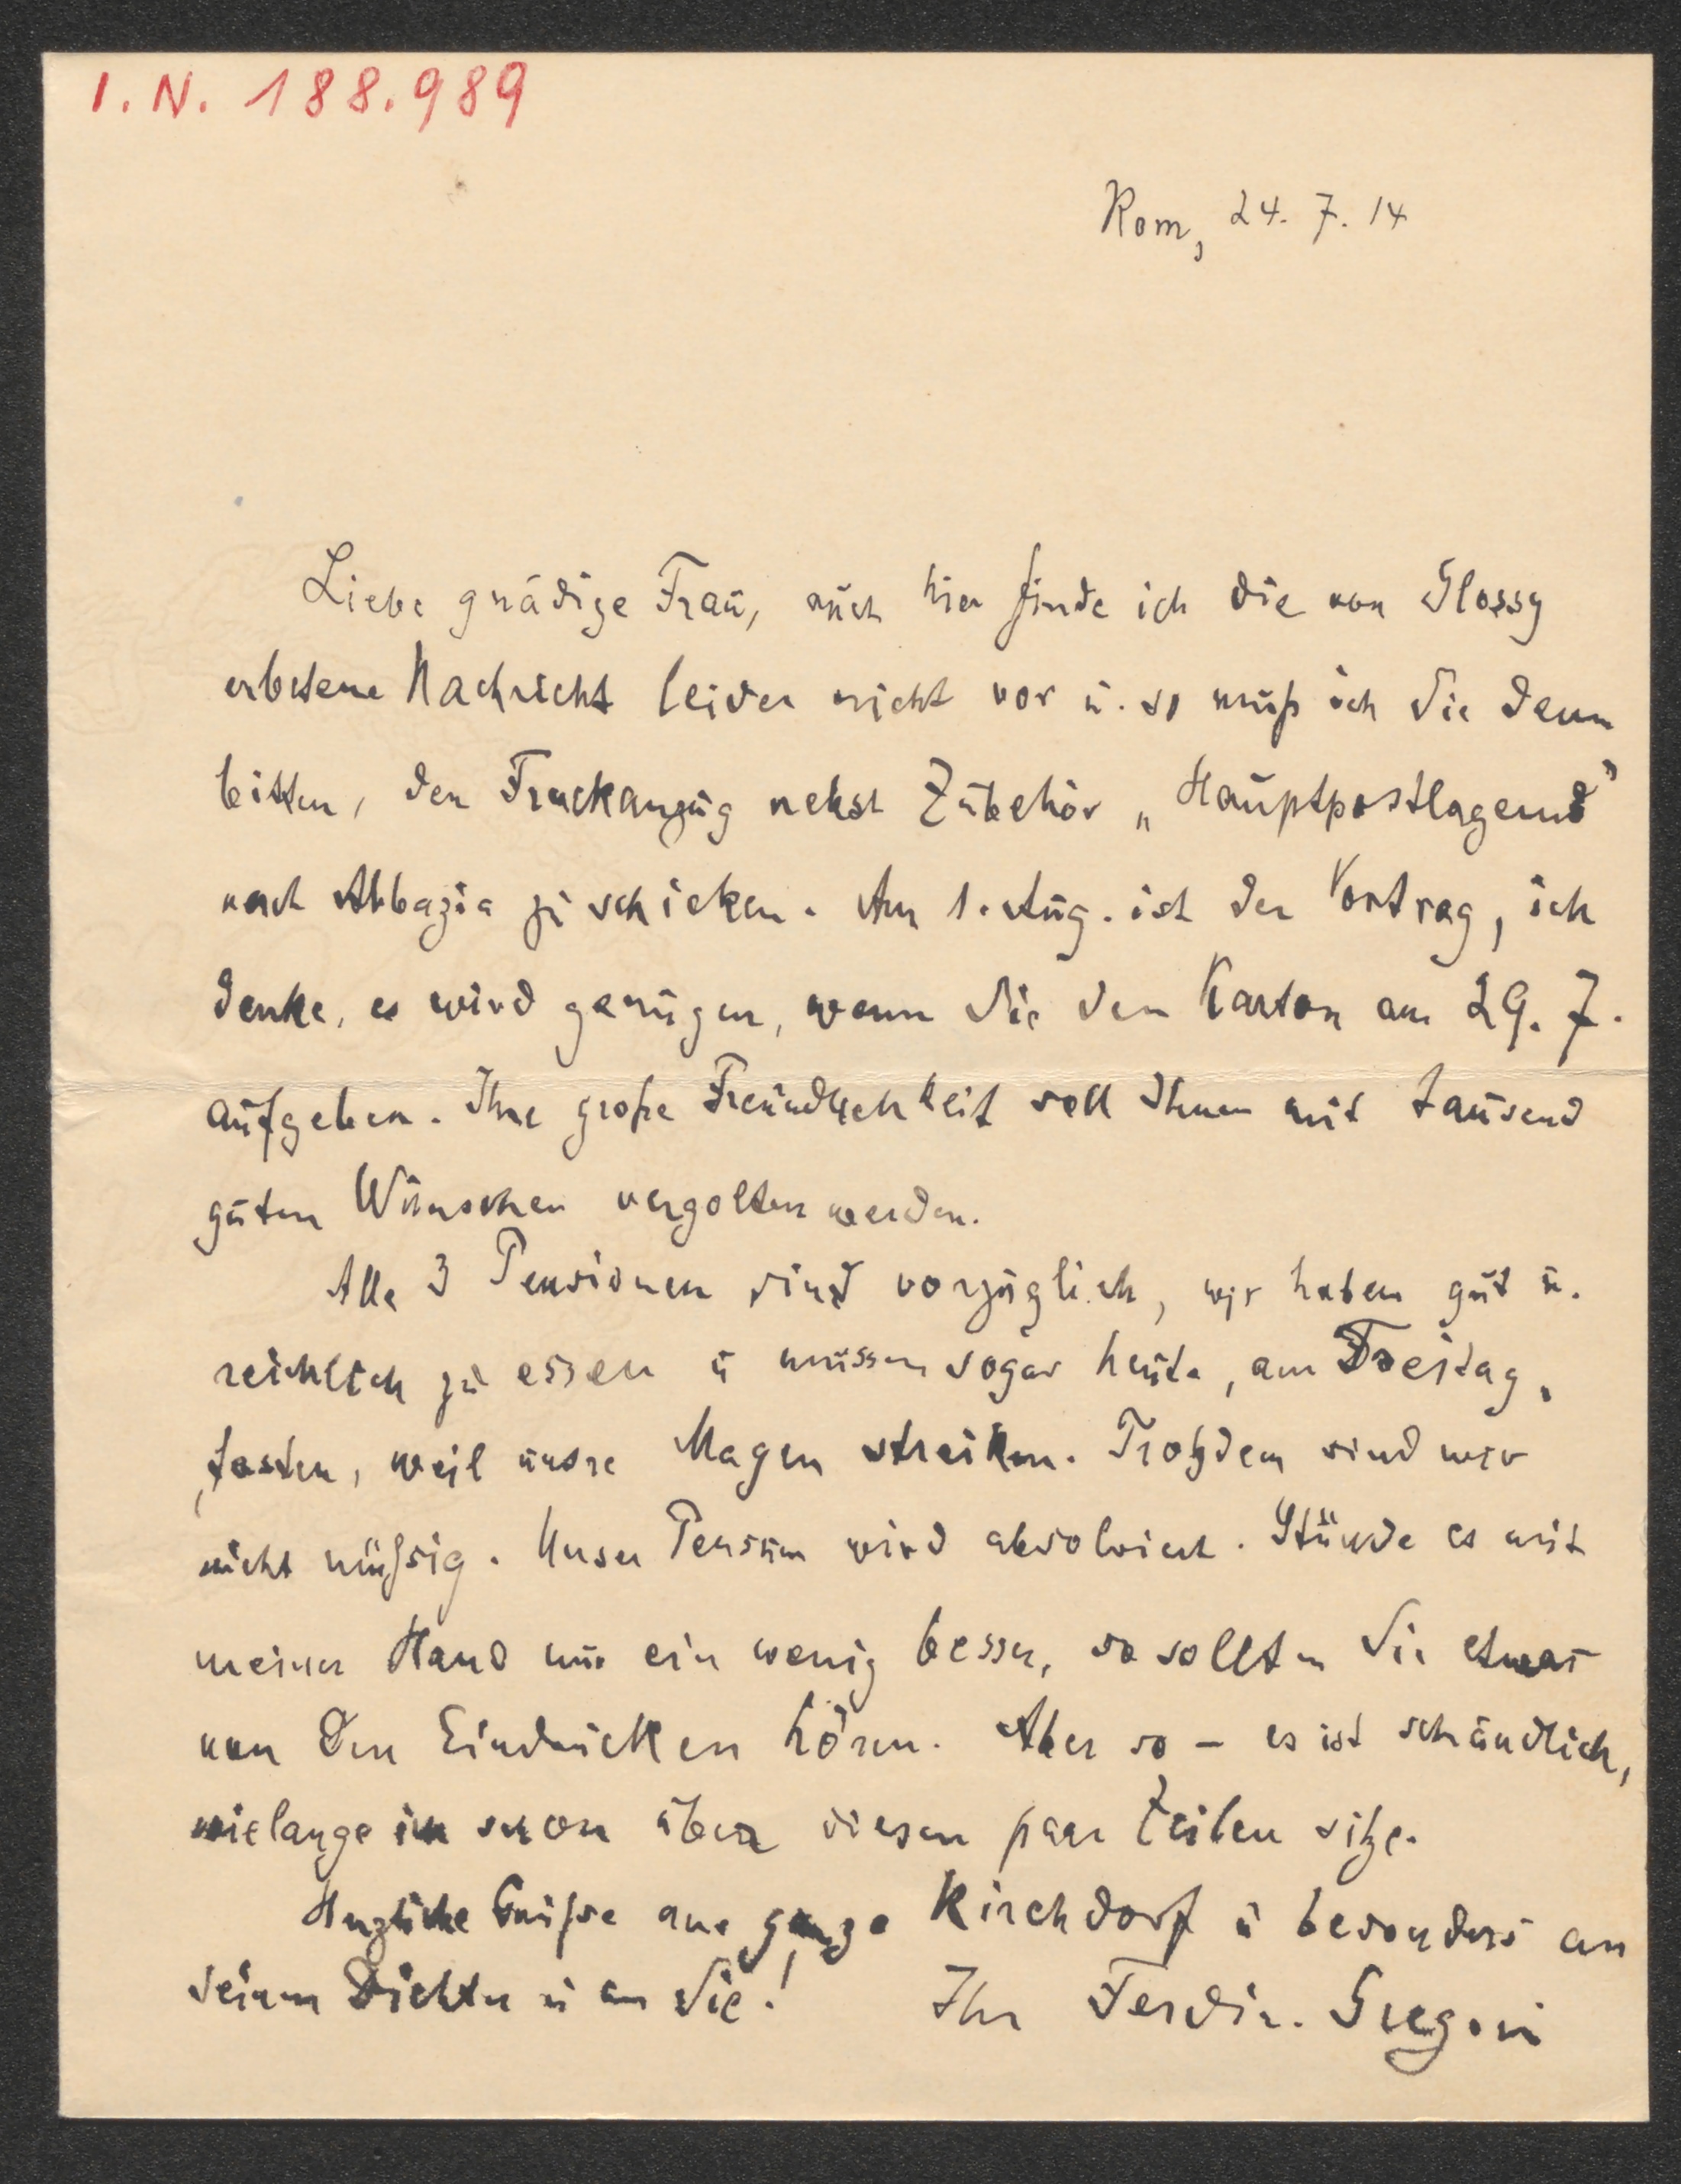 I. N. 188.989
Rom, 24. 7. 14
Liebe gnädige Frau, auch hier finde ich die von Glossy
erbetene Nachricht leider nicht vor u. so muß ich Sie denn
bitten, den Frackanzug nebst Zubehör „Hauptpostlagernd”
nach Abbazia zu schicken. Am 1. Aug. ist der Vortrag, ich
denke, es wird genügen, wenn Sie den Karton am 29. 7.
aufgeben. Ihre große Freundlichkeit soll Ihnen mit tausend
guten Wünschen vergolten werden.
Alle 3 Pensionen sind vorzüglich, wir haben gut u.
reichlich zu essen u müssen sogar heute, am Freitag,
fasten, weil unsre Magen streiken. Trotzdem sind wir
nicht müßsig. Unser Pensum wird absolviert. Stünde es mit
meiner Hand nur ein wenig besser, so sollten Sie etwas
von den Eindrücken hören. Aber so – es ist schändlich,
wielange ich schon über diesen paar Zeilen sitze.
Herzliche Grüße ans ganze Kirchdorf u besonders an
seinen Dichter u an Sie! Ihr Ferdin. Gregori